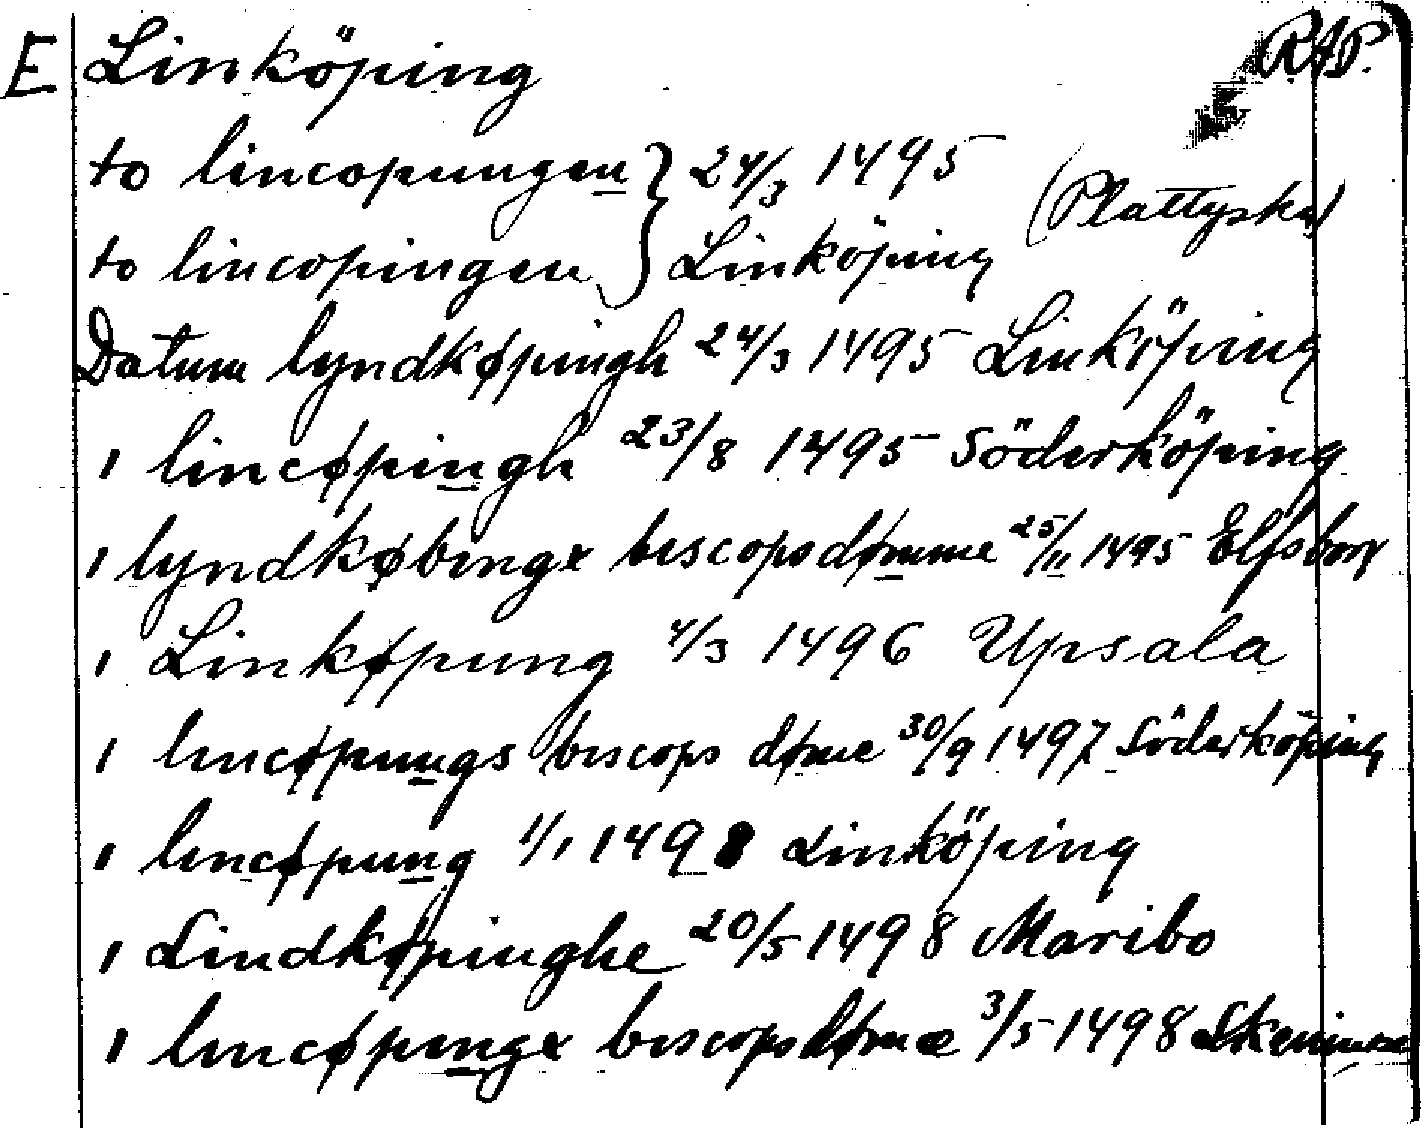 E Linköping RAP.
to lincopungen } 24/3 1495 (Plattyska)
to lincopingen } Linköping
Datum lyndkøpingh 24/3 1495 Linköping
i lincøpingh 23/8 1495 Söderköping
i lyndkøbings biscopsdømme 25/11 1495 Elfsborg
i Linkøpung 4/3 1496 Upsala
i lincøpungs biscops døme 30/9 1497 Söderköping
i lincøpung 1/1 1498 Linköping
i Lindkøpinghe 20/5 1498 Maribo
i lincøpings biscopsdømæ 3/5 1498